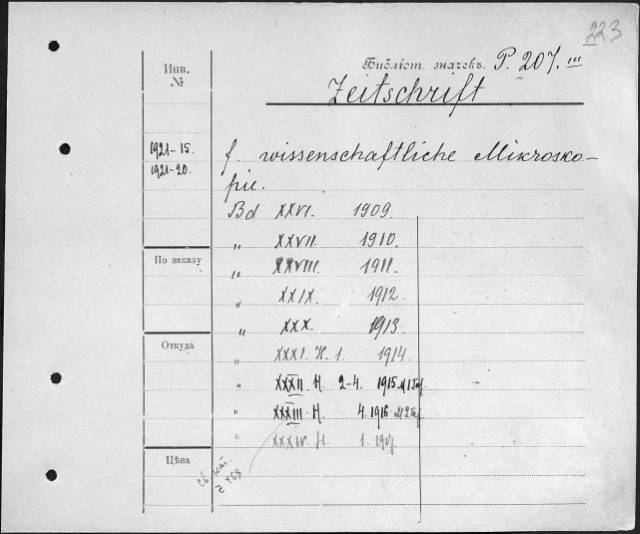 223
Инв. №
Библіот. значекъ. P. 207. III
Zeitschrift
1921-15.
1921-20.
f. wissenschaftliche Mikrosko-
pie.
Bd XXVI. 1909.
„ XXVII 1910.
По заказу
„ XXVIII. 1911.
„ XXIX. 1912.
„ XXX. 1913.
Откуда
„ XXXI. H. 1. 1914.
„ XXXII. H. 2-4. 1915
„ XXXIII H. 4. 1916
„ XXXIV. H. 1.
Цѣна